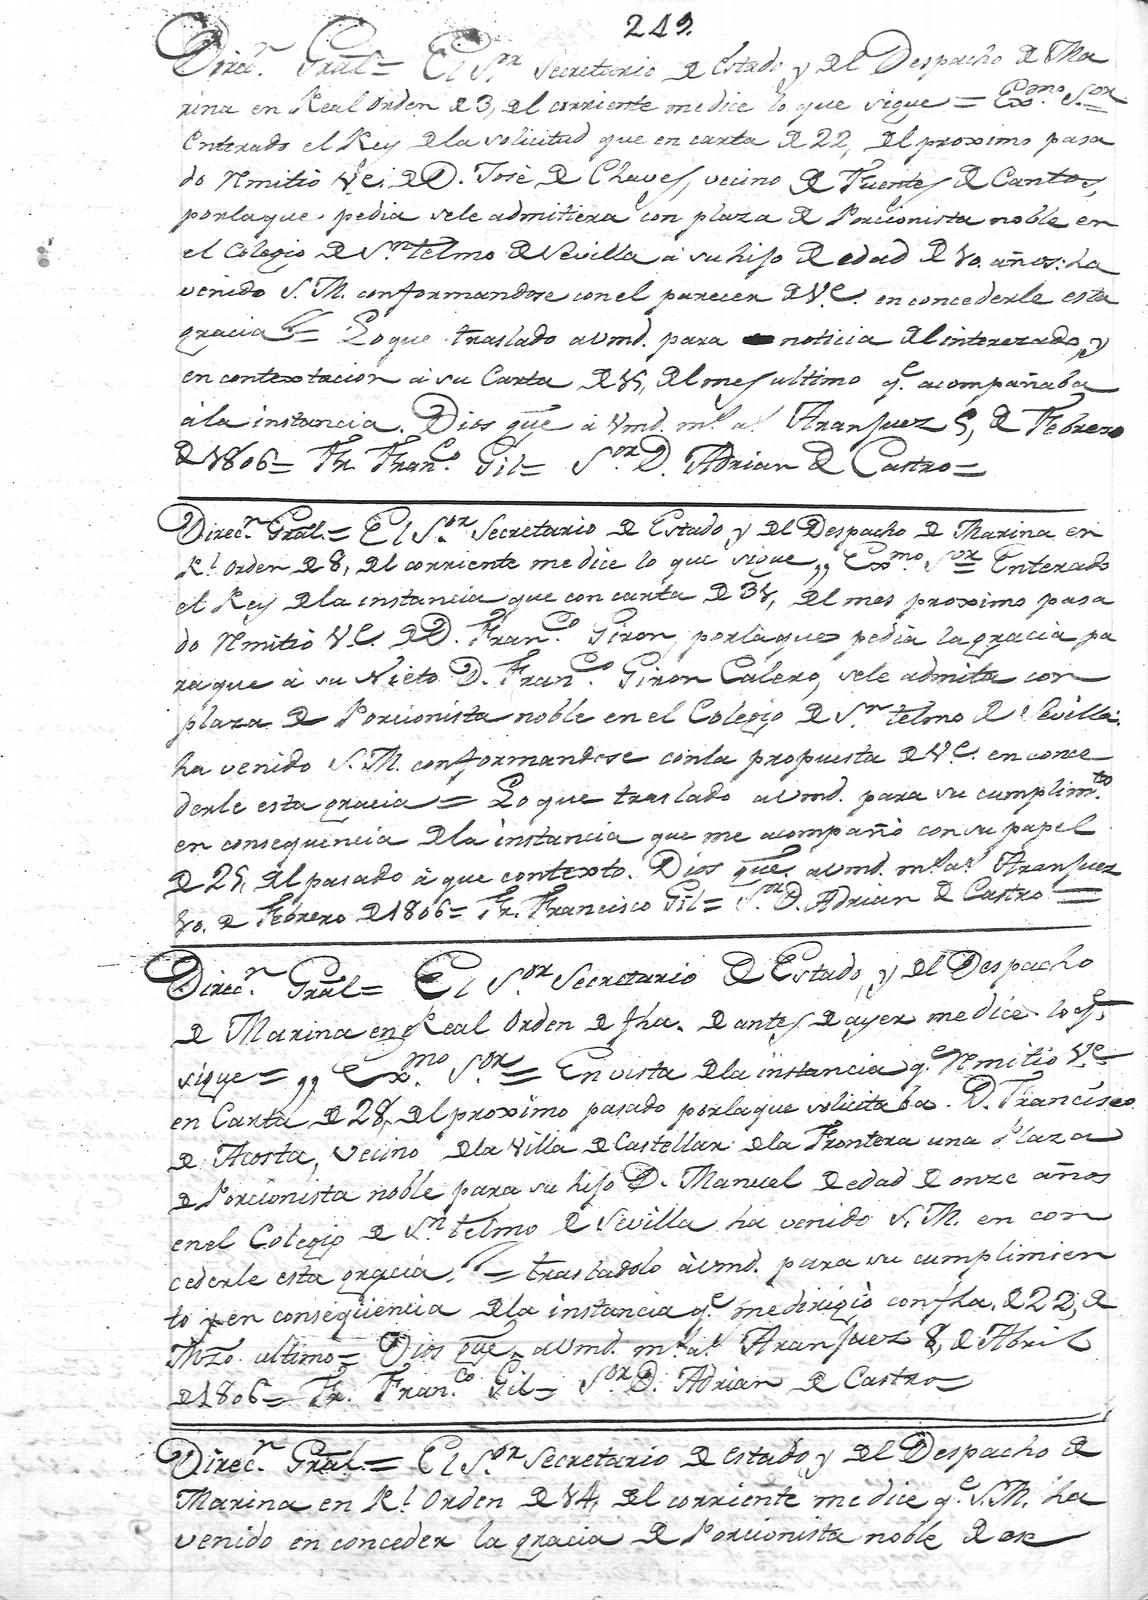 249.
Direc.n Gral= El S.or Secretario de Estado y del Despacho de Ma
rina en Real Orden de 3, del corriente me dice lo que sigue = Ex.mo S.or
Enterado el Rey de la solicitud que en carta de 22, del proximo pasa
do remitió V.e. de D. José de Chaves, vecino de Fuentes de Cantos,
porlaque pedia sele admitiera con plaza de Porcionista noble en
el Colegio de S.n telmo de Sevilla á su hijo de edad de 10. años: ha
venido S. M. conformandose con el parecer de V.e. en concederle esta
gracia = Lo que traslado avmd. para noticia del interezado, y
en contextacion á su Carta de 15, del mes ultimo q.e acompañaba
á la instancia. Dios gue á Vmd. m.s a.s Aranjuez 5, de Febrero
de 1806= Fr. Fran.co Gil= S.or D. Adrian de Castro=
Direc.n Gral.= El S.or Secretario de Estado, y del Despacho de Marina en
R.l Orden de 8, del corriente me dice lo que sigue ,, Ex.mo S.or = Enterado
el Rey de la instancia que con carta de 31, del mes proximo pasa
do remitió V.E. de D. Fran.co Giron, porlaque pedia la gracia pa
raque á su Nieto D. Fran.co Giron Calero, sele admita con
plaza de Porcionista noble en el Colegio de S.n telmo de Sevilla:
ha venido S. M. conformandose conla propuesta de V.e. en conce
derle esta gracia = Lo que traslado avmd. para su cumplim.to
en consequencia de la instancia que me acompañó con su papel
de 25, del pasado á que contexto. Dios gue. avmd. m.s a.s Aranjuez
10. de Febrero de 1806= Fr. Francisco Gil= S.or D. Adrian de Castro=
Direc.n Gral= El S.or Secretario de Estado, y del Despacho
de Marina en Real Orden de fha. de antes de ayer me dice lo q.e
sigue = ,, Ex.mo S.or = En vista de la instancia q.e remitió V.e
en Carta de 28, del proximo pasado porlaque solicitaba D. Francisco
de Acosta, vecino de la Villa de Castellar de la Frontera una Plaza
de Porcionista noble para su hijo D. Manuel de edad de onze años
enel Colegio de S.n telmo de Sevilla ha venido S. M. en con
cederle esta gracia. = trasladolo ávmd. para su cumplimien
to y en consequencia de la instancia q.e me dirigió con fha. de 22, de
Mzo. ultimo= Dios gue. avmd. m.s a.s Aranjuez 8, de Abril
de 1806= Fr. Fran.co Gil= S.or D. Adrian de Castro=
Direc.n Gral.= El S.or Secretario de Estado, y del Despacho de
Marina en R.l Orden de 14, del corriente me dice q.e S. M. ha
venido en conceder la gracia de Porcionista noble de ese